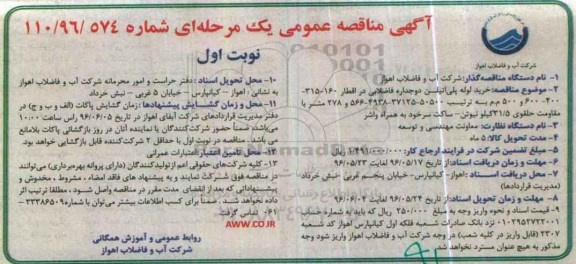 آگهی مناقصه عمومی یک مرحله‌ای شماره ۱۱۰/۹۶/۵۷۴
نوبت اول
شرکت آب و فاضلاب اهواز
۱- نام دستگاه مناقصه‌گذار: شرکت آب و فاضلاب اهواز
۲- موضوع مناقصه: خرید لوله پلی‌اتیلن دوجداره فاضلابی در اقطار ۱۶۰-۳۱۵-
۴۰۰-۶۰۰ و ۵۰۰ م.م به ترتیب ۵۰۵۰-۳۷۱۲۵-۴۹۳۸-۵۶۶ و ۲۷۸ متر با
مقاومت حلقوی ۳۱/۵ کیلو نیوتن- ساکت سرخود به همراه واشر
۳- نام دستگاه نظارت: معاونت مهندسی و توسعه
۴- مدت تحویل کالا: ۵ ماه
۵- مبلغ تضمین شرکت در فرایند ارجاع کار: ریال
۶- مهلت و زمان دریافت اسناد: از ۹۶/۰۵/۱۷ لغایت ۹۶/۰۵/۲۳
۷- محل دریافت اسناد: اهواز- کیانپارس- خیابان پنجم غربی نبش خرداد
(مدیریت قراردادها)
۸- مهلت و زمان تحویل اسناد: از ۹۶/۰۵/۲۴ لغایت ۹۶/۰۶/۰۴
۹- قیمت اسناد و نحوه واریز وجه به مبلغ ۲۵۰/۰۰۰ ریال که باید به شماره حساب
۰۱۰۲۹۵۲۷۲۲۰۰۱ نزد بانک صادرات شعبه فلکه اول کیانپارس اهواز کد شعبه
۲۳۰۷ (قابل واریز در کلیه شعب) در وجه شرکت آب و فاضلاب اهواز واریز شود وجه
مذکور به هیچ عنوان مسترد نخواهد شد.
۱۰- محل تحویل اسناد: دفتر حراست و امور محرمانه شرکت آب و فاضلاب اهواز
به نشانی: اهواز - کیانپارس - خیابان ۵ غربی - نبش خرداد
۱۱- محل و زمان گشایش پیشنهادها: زمان گشایش پاکات (الف و ب و ج) در
دفتر مدیریت قراردادهای شرکت آبفای اهواز در تاریخ ۹۶/۰۶/۰۵ راس ساعت ۱۰:۰۰
می‌باشد، ضمناً حضور شرکت‌کنندگان یا نماینده آنان در روز بازگشائی پاکات بلامانع
می باشد. مناقصه در نوبت اول با حداقل ۲ شرکت‌کننده قابل بازگشایی خواهد بود.
۱۲- محل تامین اعتبار: اعتبارات عمرانی
۱۳- کلیه شرکت‌های حقوقی اعم از تولیدکنندگان (دارای پروانه بهره‌برداری) می‌توانند
در مناقصه فوق شرکت نمایند و به پیشنهاد های فاقد امضاء، مشروط، مخدوش و
پیشنهاداتی که بعد از انقضای مدت مقرر در مناقصه واصل شود، مطلقا ترتیب اثر
داده نخواهد شد. ضمناً برای کسب اطلاعات بیشتر می توان با شماره ۳۳۳۸۶۵۰۹-
۰۶۱ تماس گرفت
WWW.CO.IR
روابط عمومی و آموزش همگانی
شرکت آب و فاضلاب اهواز